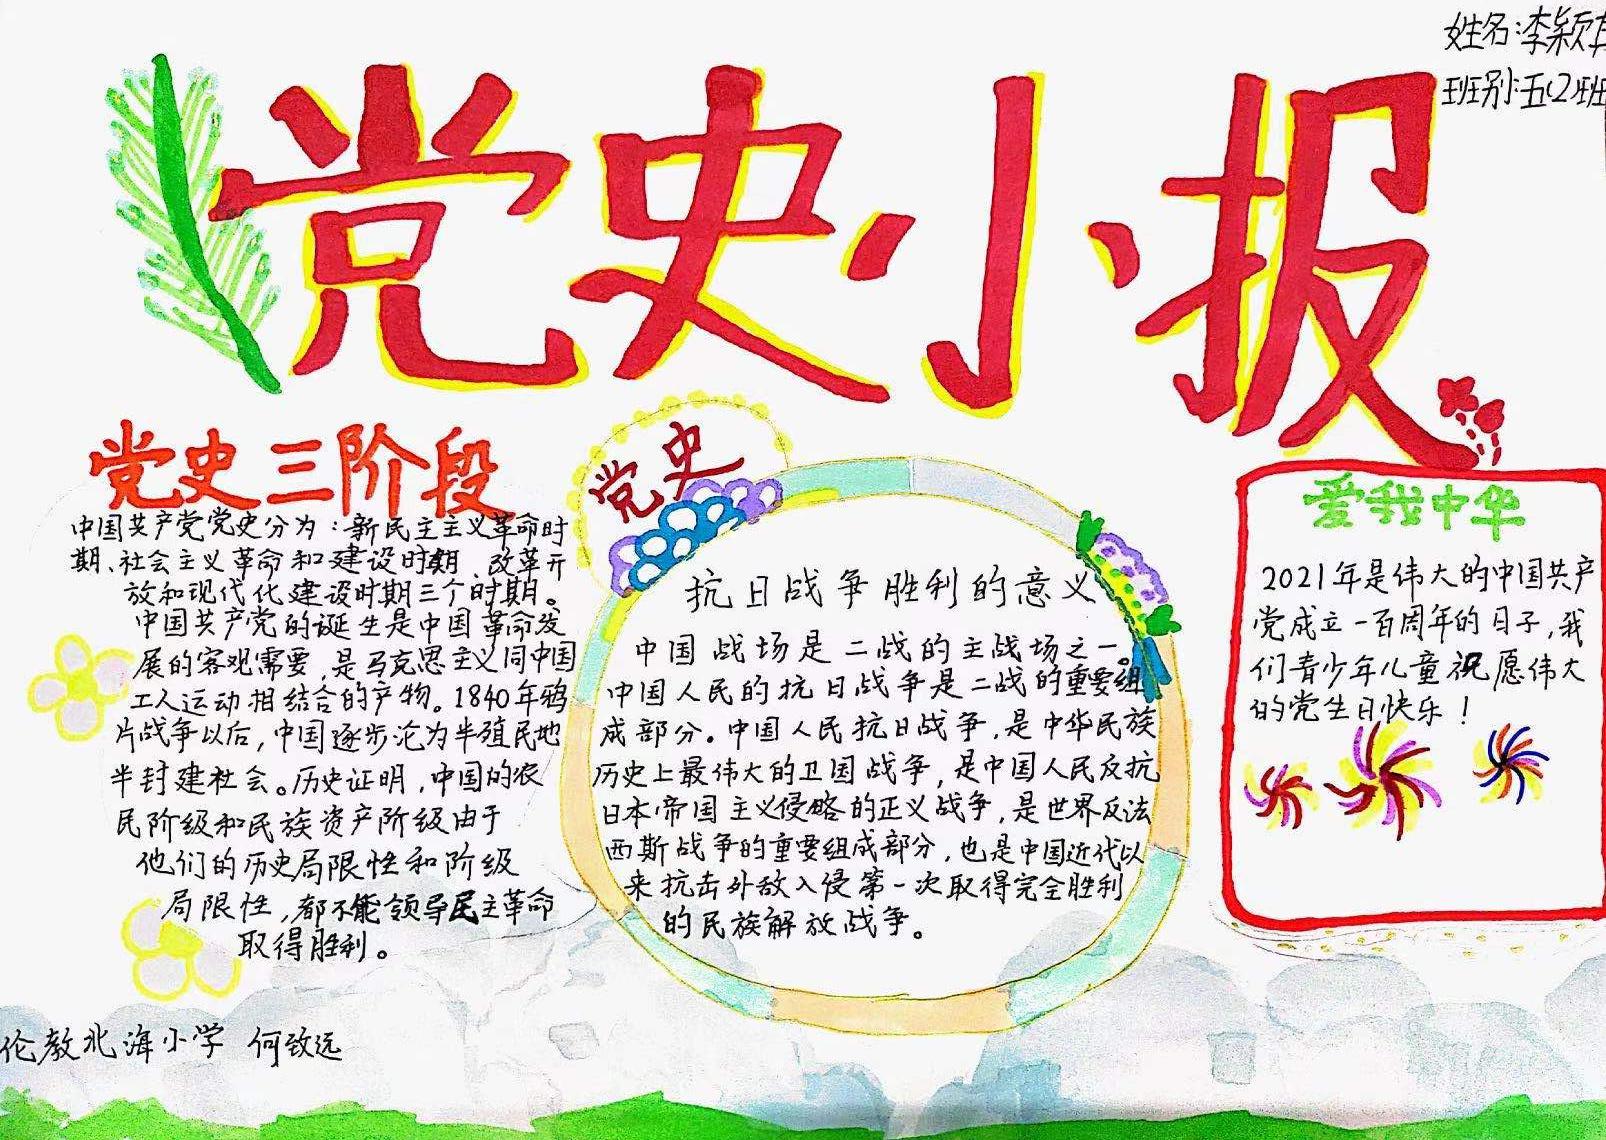 姓名:李颖
班别:五(2)班
党史小报
党史三阶段
中国共产党党史分为：新民主主义革命时
期、社会主义革命和建设时期、改革开
放和现代化建设时期三个时期。
中国共产党的诞生是中国革命发
展的客观需要，是马克思主义同中国
工人运动相结合的产物。1840年鸦
片战争以后，中国逐步沦为半殖民地
半封建社会。历史证明，中国的农
民阶级和民族资产阶级由于
他们的历史局限性和阶级
局限性，都不能领导民主革命
取得胜利。
党史
抗日战争胜利的意义
中国战场是二战的主战场之一。
中国人民的抗日战争是二战的重要组
成部分。中国人民抗日战争，是中华民族
历史上最伟大的卫国战争，是中国人民反抗
日本帝国主义侵略的正义战争，是世界反法
西斯战争的重要组成部分，也是中国近代以
来抗击外敌入侵第一次取得完全胜利
的民族解放战争。
爱我中华
2021年是伟大的中国共产
党成立一百周年的日子，我
们青少年儿童祝愿伟大
的党生日快乐！
伦教北海小学 何致远